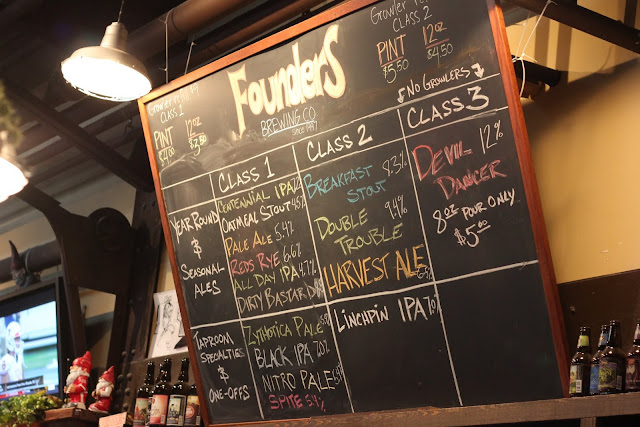 Growler
CLASS 1
PINT 12oz
$4.00 $3.50
FOUNDERS
BREWING CO.
SINCE 1997
Growler
CLASS 2
PINT 12oz
$5.50 $4.50
NO GROWLERS
CLASS 1
CLASS 2
CLASS 3
YEAR ROUND
$
SEASONAL
ALES
CENTENNIAL IPA
OATMEAL STOUT
PALE ALE 5.4%
RED'S RYE 6.6%
ALL DAY IPA 4.7%
DIRTY BASTARD
BREAKFAST STOUT 8.3%
DOUBLE TROUBLE 9.4%
HARVEST ALE
DEVIL DANCER 12%
8oz POUR ONLY
$5.00
TAPROOM
SPECIALTIES
$
ONE-OFFS
ZYTHOTICA PALE
BLACK IPA 7.0%
NITRO PALE
SPITE
LINCHPIN IPA 7.0%